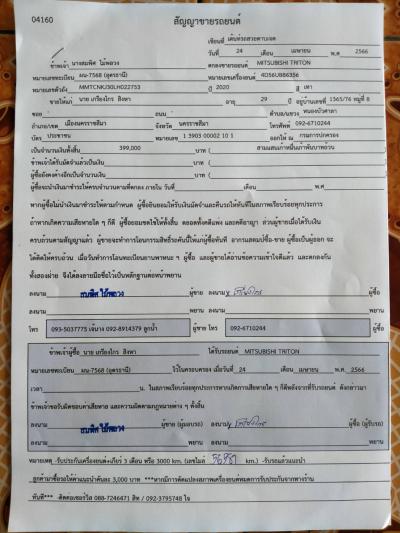 04160
สัญญาขายรถยนต์
เขียนที่ เต็นท์รถสวยตามเจต
วันที่ 24 เดือน เมษายน พ.ศ 2566
ข้าพเจ้า นางสมพิศ ไม้พลวง ตกลงขายรถยนต์ MITSUBISHI TRITON
หมายเลขทะเบียน ผน-7568 (อุดรธานี) หมายเลขเครื่องยนต์ 4D56UBB6356
หมายเลขตัวถัง MMTCNKJ30LH022753 ปี 2020 สี เทา
ขายให้แก่ นาย เกรียงไกร สิงหา อายุ 29 ปี อยู่บ้านเลขที่ 1365/76 หมู่ที่ 8
ซอย ถนน ตำบล/แขวง หนองบัวศาลา
อำเภอ/เขต เมืองนครราชสีมา จังหวัด นครราชสีมา โทรศัพท์ 092-6710244
บัตร ประชาชน หมายเลข 1 3903 00002 10 1 ออกให้ ณ กรมการปกครอง
เป็นจำนวนเงินทั้งสิ้น 399,000 บาท ( สามแสนเก้าหมื่นเก้าพันบาทถ้วน
ข้าพเจ้าได้รับมัดจำแล้วเป็นเงิน บาท (
ผู้ซื้อยังคงค้างอีกเป็นจำนวนเงิน บาท (
ผู้ซื้อจะนำเงินมาชำระให้ครบจำนวนตามที่ตกลง ภายใน วันที่ เดือน พ.ศ
หากผู้ซื้อไม่นำเงินมาชำระให้ตามกำหนด ผู้ซื้อยินยอมให้ริบเงินมัดจำและคืนรถให้ทันทีในสภาพเรียบร้อยทุกประการ
ถ้าหากเกิดความเสียหายใด ๆ ก็ดี ผู้ซื้อยอมชดใช้ให้ทั้งสิ้น ตลอดทั้งคดีแพ่ง และคดีอาญา ส่วนผู้ขายเมื่อได้รับเงิน
ครบถ้วนตามสัญญาแล้ว ผู้ขายจะทำการโอนกรรมสิทธิ์รถคันนี้ให้แก่ผู้ซื้อทันที
ได้ติดไฟครบถ้วน เมื่อวันทำการโอนทะเบียนยานพาหนะ ๆ ผู้ซื้อ และผู้ขายได้อ่านข้อความเข้าใจดีแล้ว และตกลงกัน
ทั้งสองฝ่าย จึงได้ลงลายมือชื่อไว้เป็นหลักฐานต่อหน้าพยาน
ลงนาม สมพิศ ไม้พลวง ผู้ขาย ลงนาม เกรียงไกร ผู้ซื้อ
ลงนาม พยาน ลงนาม พยาน
โทร 093-5037775 092-8914379 ผู้ขาย โทร 092-6710244 ผู้ซื้อ
ข้าพเจ้าผู้ซื้อ นาย เกรียงไกร สิงหา ได้รับรถยนต์ MITSUBISHI TRITON
หมายเลขทะเบียน ผน-7568 (อุดรธานี) ไว้ในครอบครอง เมื่อวันที่ 24 เดือน เมษายน พ.ศ. 2566
เวลา น. ในสภาพเรียบร้อยทุกประการหากเกิดการเสียหายใด ๆ ก็ดีหลังจากที่รับรถยนต์ ดังกล่าวมา
ข้าพเจ้าขอรับผิดชอบค่าเสียหาย และความผิดตามกฎหมายต่าง ๆ ทั้งสิ้น
ลงนาม สมพิศ ไม้พลวง ผู้ขาย (ผู้มอบรถ) ลงนาม เกรียงไกร ผู้ซื้อ (ผู้รับรถ)
ลงนาม พยาน ลงนาม พยาน
หมายเหตุ -รับประกันเครื่องยนต์+เกียร์ 3 เดือน หรือ 3000 km. (เลขไมล์ km.) -รับรถแล้วแนะนำ
ลูกค้ามาซื้อรถให้ค่าแนะนำคันละ 3,000 บาท ***หากมีการดัดแปลงสภาพเครื่องยนต์หมดการรับประกันจากทางร้าน
ทันที*** -ติดต่อเซอร์วิส 088-7246471 สิท / 092-3795748 ใจ